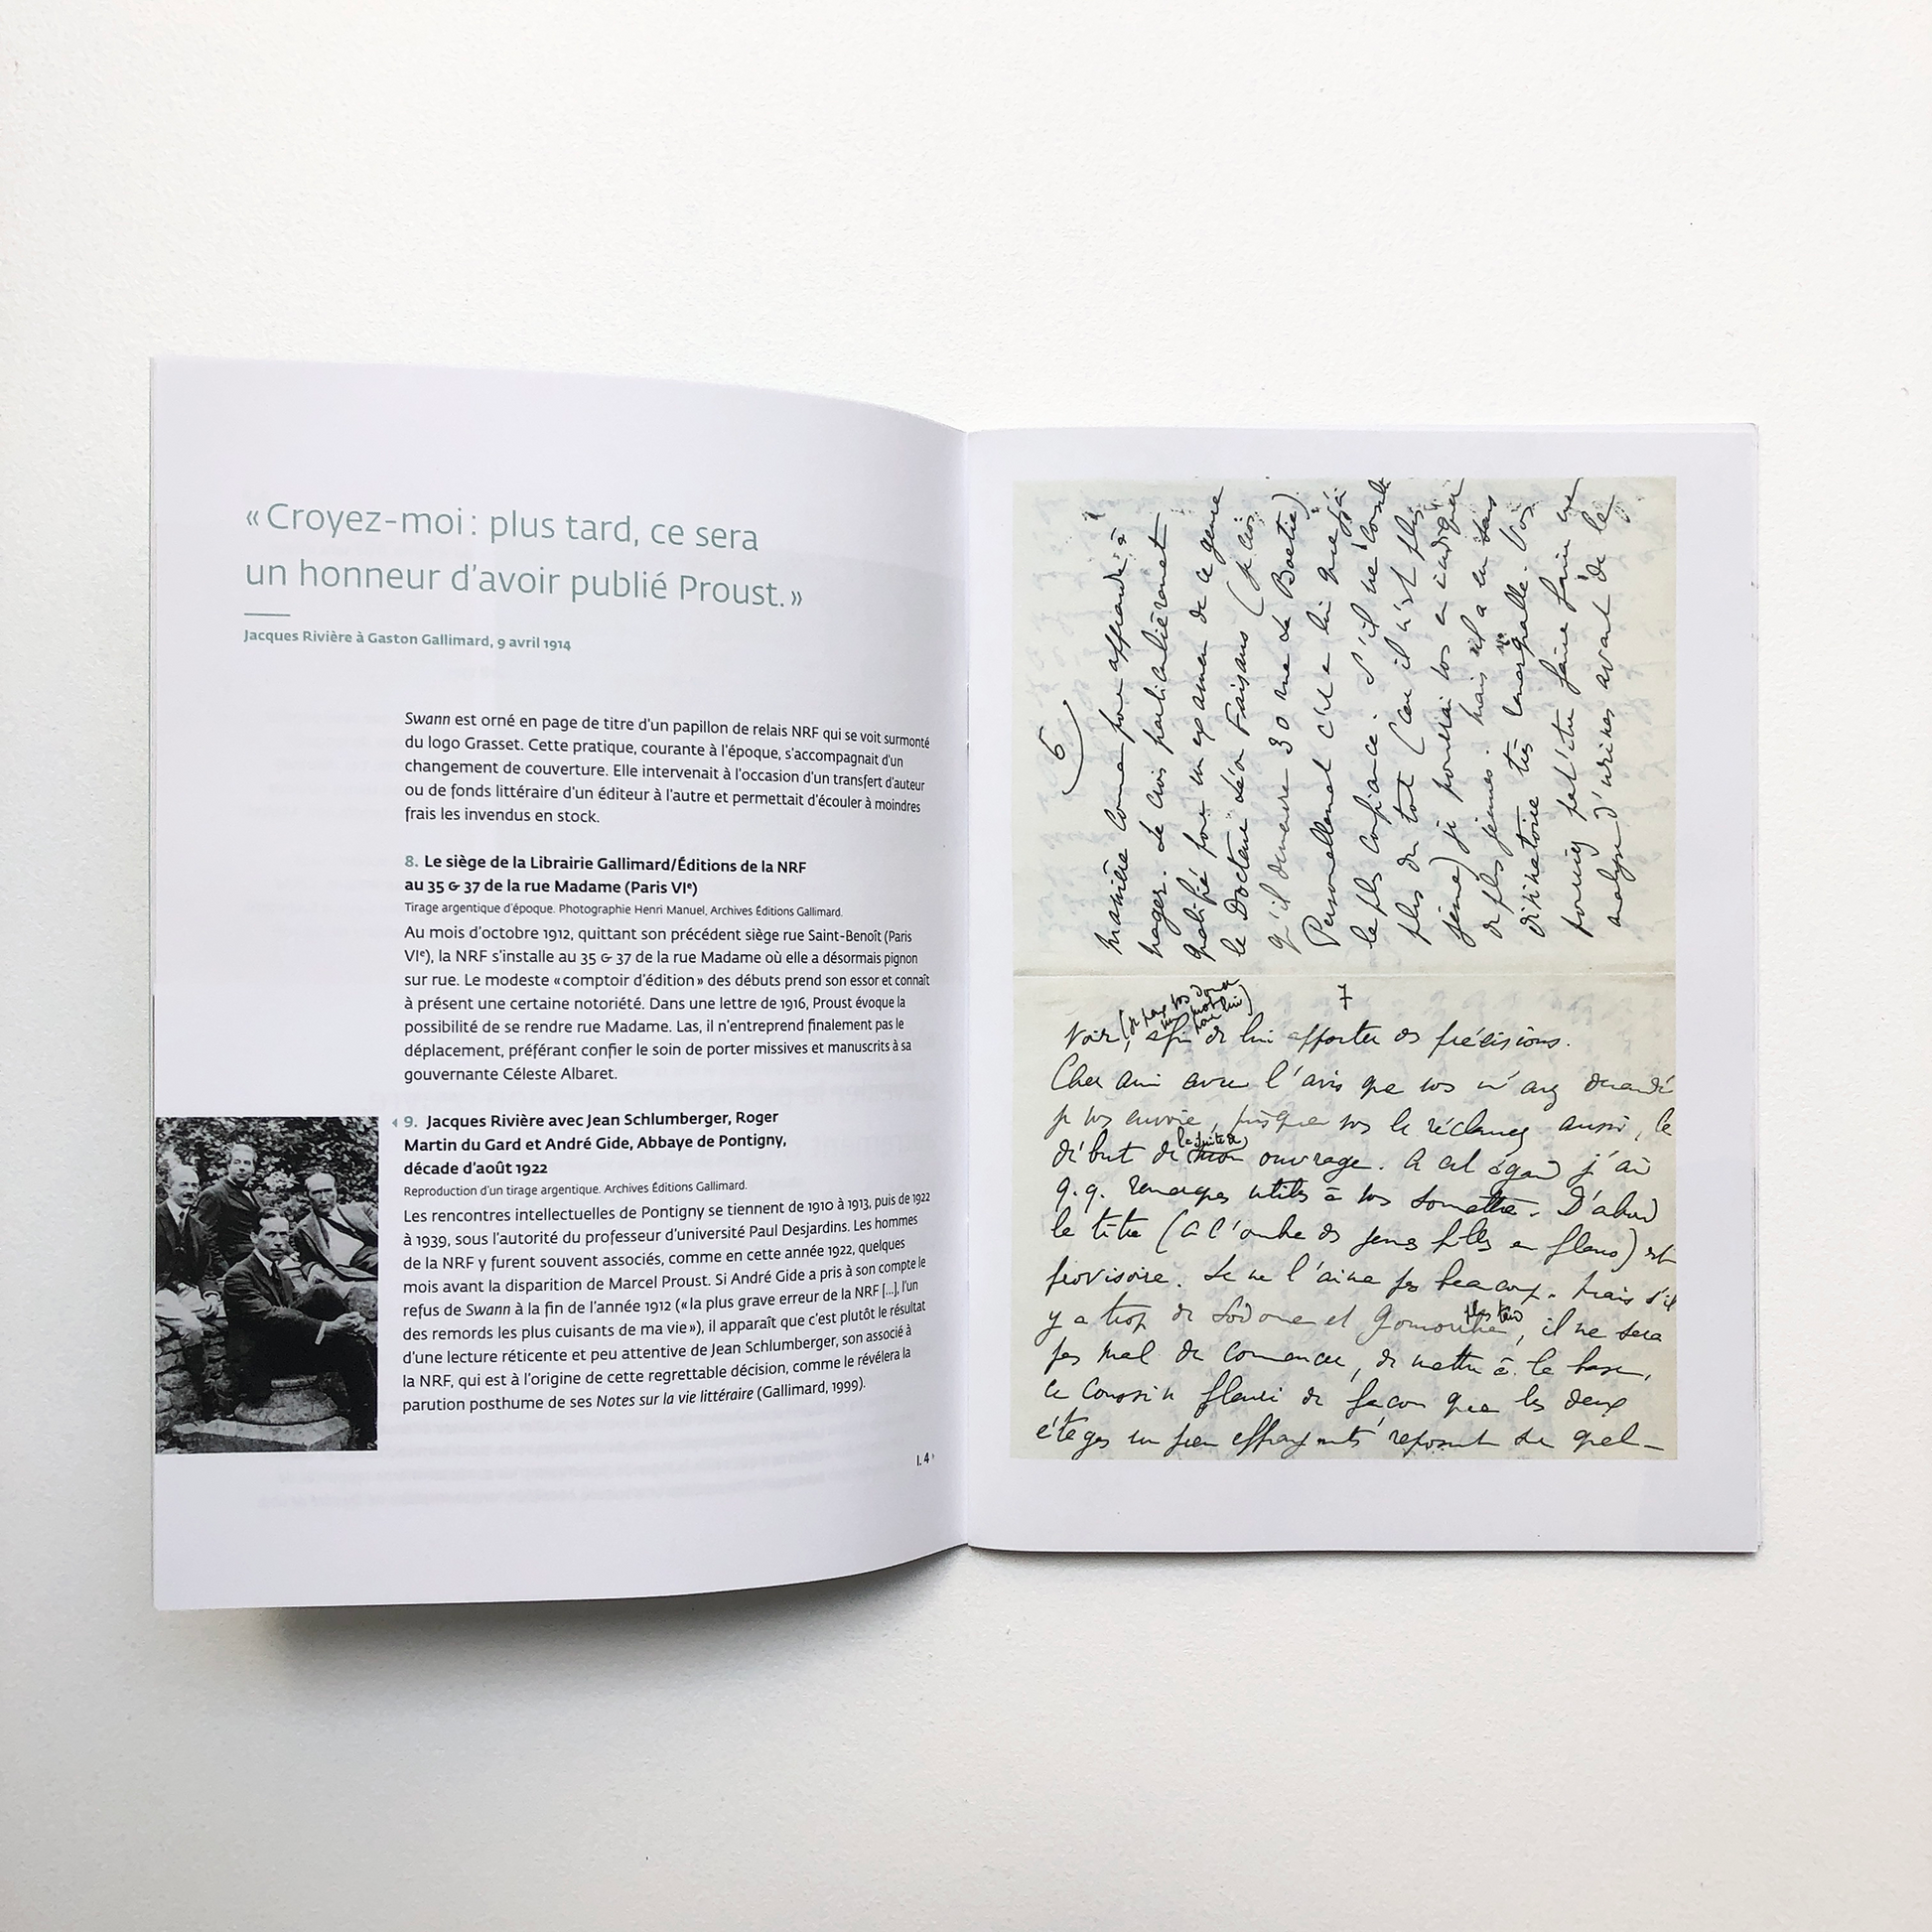 « Croyez-moi : plus tard, ce sera
un honneur d'avoir publié Proust. »
Jacques Rivière à Gaston Gallimard, 9 avril 1914
Swann est orné en page de titre d'un papillon de relais NRF qui se voit surmonté
du logo Grasset. Cette pratique, courante à l'époque, s'accompagnait d'un
changement de couverture. Elle intervenait à l'occasion d'un transfert d'auteur
ou de fonds littéraire d'un éditeur à l'autre et permettait d'écouler à moindres
frais les invendus en stock.
8. Le siège de la Librairie Gallimard/Éditions de la NRF
au 35 & 37 de la rue Madame (Paris VIe)
Tirage argentique d'époque. Photographie Henri Manuel, Archives Éditions Gallimard.
Au mois d'octobre 1912, quittant son précédent siège rue Saint-Benoît (Paris
VIe), la NRF s'installe au 35 & 37 de la rue Madame où elle a désormais pignon
sur rue. Le modeste « comptoir d'édition » des débuts prend son essor et connaît
à présent une certaine notoriété. Dans une lettre de 1916, Proust évoque la
possibilité de se rendre rue Madame. Las, il n'entreprend finalement pas le
déplacement, préférant confier le soin de porter missives et manuscrits à sa
gouvernante Céleste Albaret.
9. Jacques Rivière avec Jean Schlumberger, Roger
Martin du Gard et André Gide, Abbaye de Pontigny,
décade d'août 1922
Reproduction d'un tirage argentique. Archives Éditions Gallimard.
Les rencontres intellectuelles de Pontigny se tiennent de 1910 à 1913, puis de 1922
à 1939, sous l'autorité du professeur d'université Paul Desjardins. Les hommes
de la NRF y furent souvent associés, comme en cette année 1922, quelques
mois avant la disparition de Marcel Proust. Si André Gide a pris à son compte le
refus de Swann à la fin de l'année 1912 (« la plus grave erreur de la NRF [...], l'un
des remords les plus cuisants de ma vie »), il apparaît que c'est plutôt le résultat
d'une lecture réticente et peu attentive de Jean Schlumberger, son associé à
la NRF, qui est à l'origine de cette regrettable décision, comme le révélera la
parution posthume de ses Notes sur la vie littéraire (Gallimard, 1999).
I. 4
6)
manière comme pour apprendre à
nager. Je crois particulièrement
qualifié pour un examen de ce genre
le Docteur Léon Faisans (je crois
qu'il demeure 30 rue La Boetie)
Personnellement c'est en lui que j'ai
le plus confiance. S'il ne
plus du tout (car il n'est plus
jeune) je pourrai vos en indiquer
de plus jeunes. mais il a en
pourriez peut'être faire faire une
analyse d'urines avant de le
7
voir, afin de lui apporter des précisions.
Cher ami avec l'avis que vos m'avez demandé
je vos envoie, puisque vos le réclamez aussi, le
début de la suite de mon ouvrage. A cet égard j'ai
q.q. remarques utiles à vos soumettre. D'abord
le titre (à l'ombre des jeunes filles en fleurs) est
provisoire. Je ne l'aime pas beaucoup. Mais s'il
y a trop de Sodome et Gomorrhe plus tard, il ne sera
pas mal de commencer, de mettre à la base,
ce coussin fleuri de façon que les deux
étages un peu effrayants reposent sur quel-